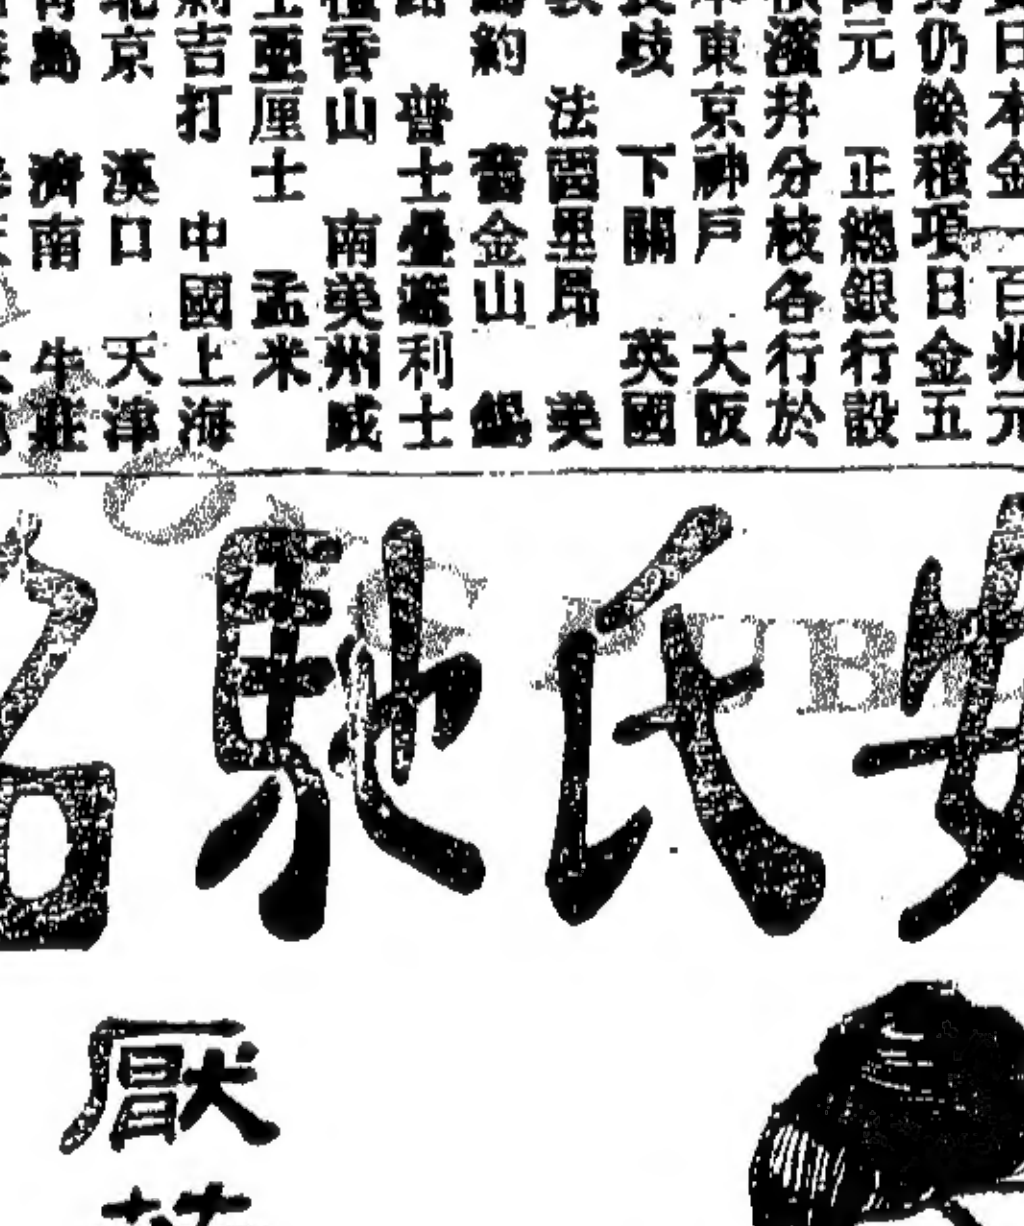 日本金一百兆元
仍餘積項日金五
元 正總銀行設
濱幷分枝各行於
東京神戶 大阪
歧 下關 英國
法國里昂 美
約 舊金山 錫
普士疊遮利士
香山 南美州威
亜厘士 孟米
吉打 中國上海
京 漢口 天津
島 濟南 牛莊
安氏馳名
厭